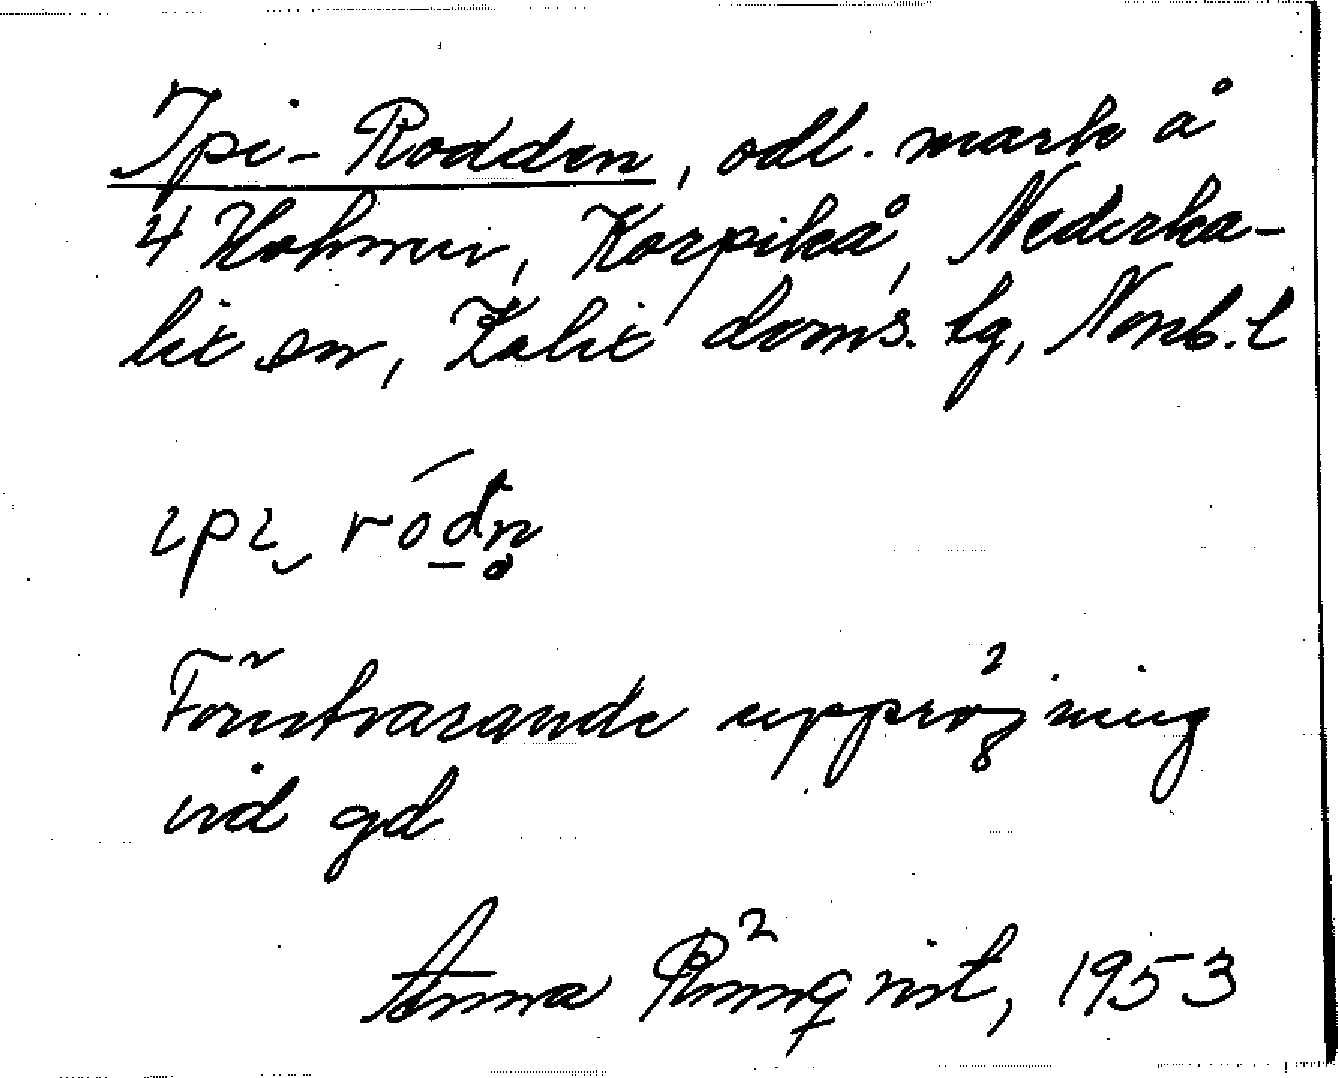 Ipi-Rodden, odl. mark å
4 Holmen, Korpikå, Nederka-
lix sn, Kalix doms. lg, Norrb. l
ipi rodn
Försvarande uppröjning
vid gd
Anna Rönnqvist, 1953